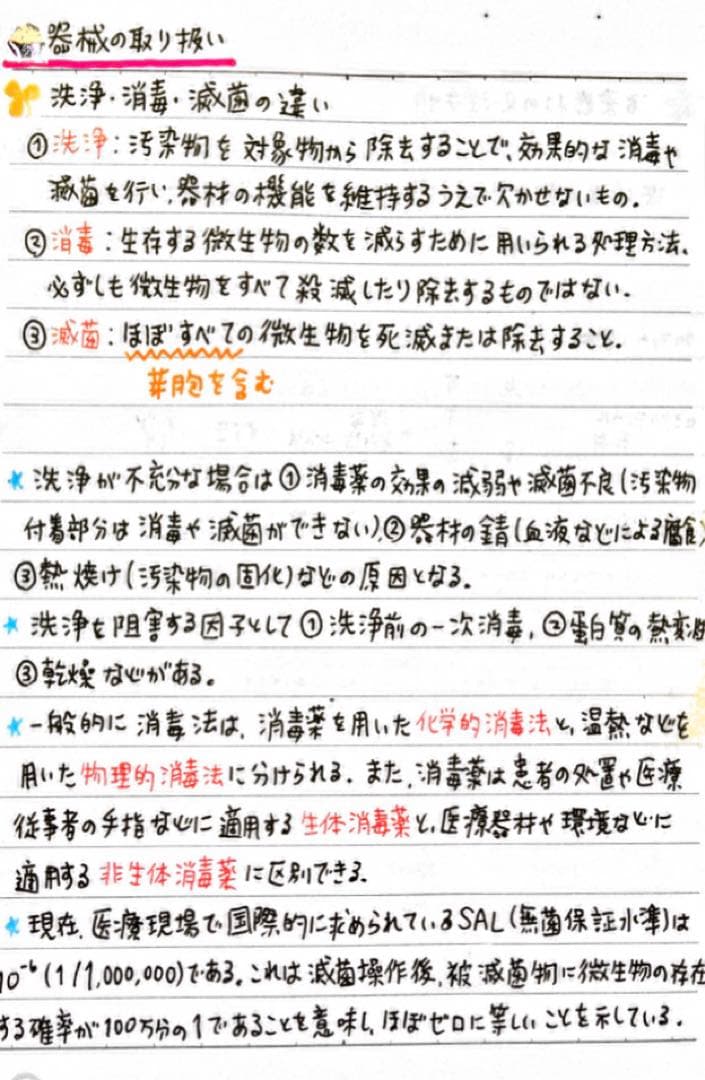 器械の取り扱い
洗浄・消毒・滅菌の違い
①洗浄：汚染物を対象物から除去することで、効果的な消毒や
滅菌を行い、器材の機能を維持するうえで欠かせないもの。
②消毒：生存する微生物の数を減らすために用いられる処理方法、
必ずしも微生物をすべて殺滅したり除去するものではない。
③滅菌：ほぼすべての微生物を死滅または除去すること。
芽胞を含む
★洗浄が不充分な場合は①消毒薬の効果の減弱や滅菌不良(汚染物
付着部分は消毒や滅菌ができない)、②器材の錆(血液などによる腐食)
③熱焼け(汚染物の固化)などの原因となる。
★洗浄を阻害する因子として①洗浄前の一次消毒、②蛋白質の熱変性
③乾燥などがある。
★一般的に消毒法は、消毒薬を用いた化学的消毒法と、温熱などを
用いた物理的消毒法に分けられる。また、消毒薬は患者の処置や医療
従事者の手指などに適用する生体消毒薬と、医療器材や環境などに
適用する非生体消毒薬に区別できる。
★現在、医療現場で国際的に求められているSAL(無菌保証水準)は
10⁻⁶(1/1,000,000)である。これは滅菌操作後、被滅菌物に微生物の存在
する確率が100万分の1であることを意味し、ほぼゼロに等しいことを示している。